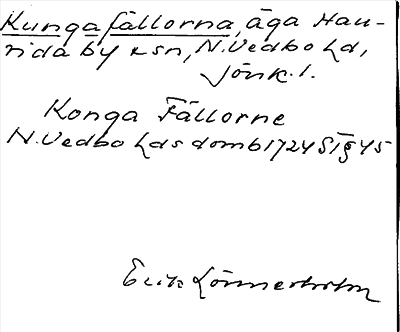 Kungafällorna, äga Hau-
rida by o sn, N. Vedbo hd,
Jönk. l.
Konga Fällorne
N. Vedbo hds domb 1724 S I § 45
Erik Lönnerholm